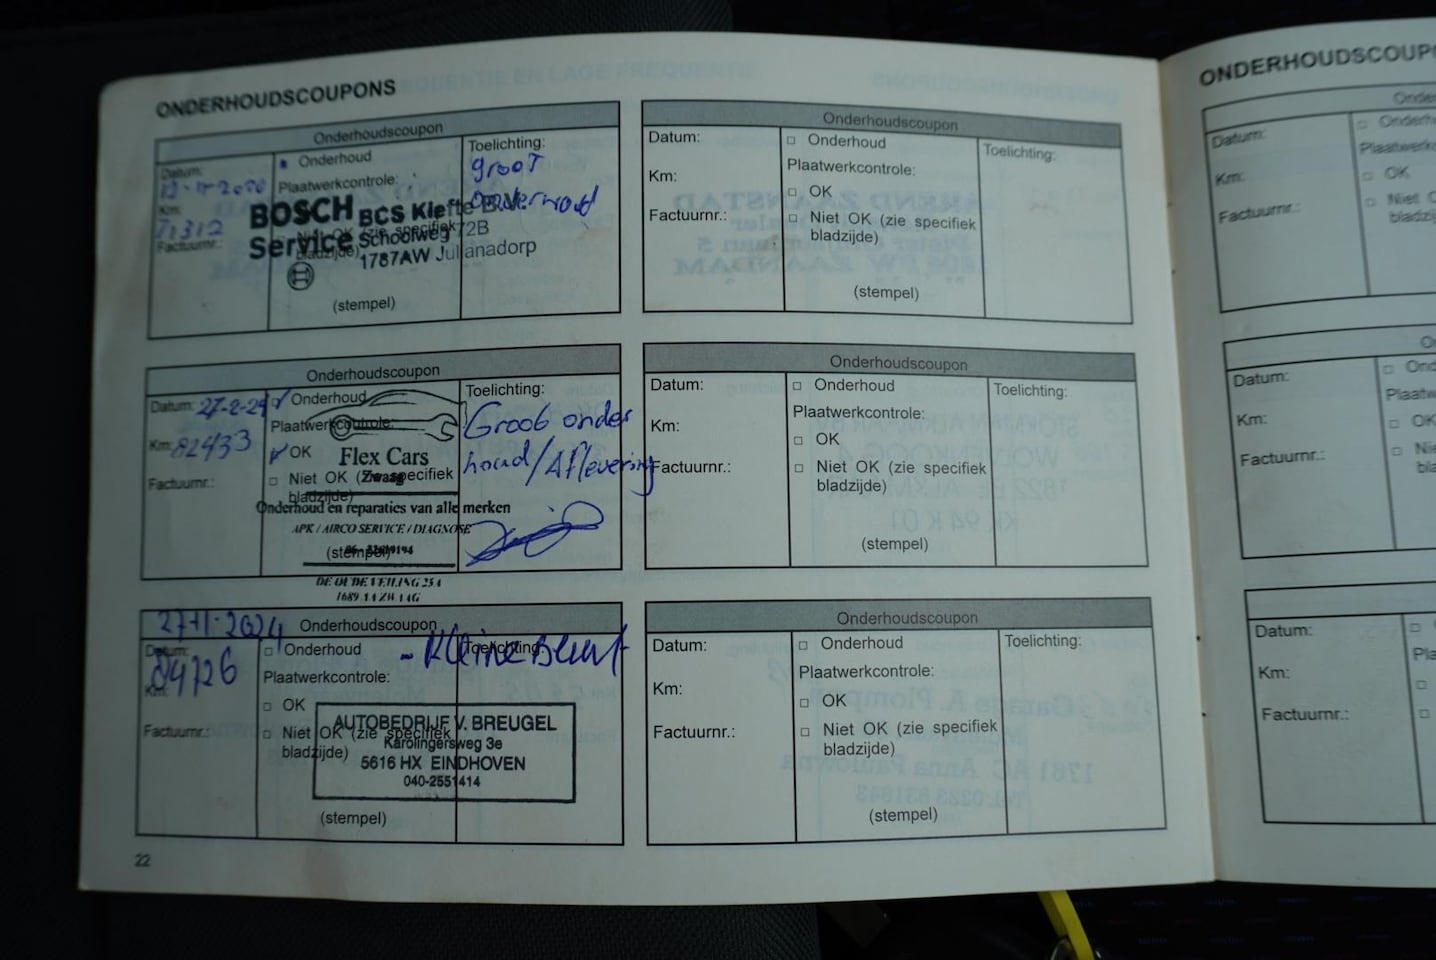 ONDERHOUDSCOUPONS
Onderhoudscoupon
Datum:
Km:
71312
Factuurnr.:
Onderhoud
Plaatwerkcontrole:
Niet OK (zie specifiek
bladzijde)
(stempel)
BOSCH
Service
BCS Klefte B.V.
Schoolweg 72B
1787AW Julianadorp
Toelichting:
groot
onderhoud
Onderhoudscoupon
Datum: 27-2-24
Km: 82433
Factuurnr.:
Onderhoud
Plaatwerkcontrole:
OK
Niet OK (zie specifiek
bladzijde)
(stempel)
Flex Cars
Zwaag
Onderhoud en reparaties van alle merken
APK / AIRCO SERVICE / DIAGNOSE
DE OUDE VEILING 25A
Toelichting:
Groot onder
houd/Aflevering
27-11-2024
Onderhoudscoupon
Datum:
84726
Km:
Factuurnr.:
Onderhoud
Plaatwerkcontrole:
OK
Niet OK (zie specifiek
bladzijde)
(stempel)
Toelichting:
- Kleine Beurt
AUTOBEDRIJF V. BREUGEL
Karolingersweg 3e
5616 HX EINDHOVEN
040-2551414
22
Onderhoudscoupon
Datum:
Km:
Factuurnr.:
Onderhoud
Plaatwerkcontrole:
OK
Niet OK (zie specifiek
bladzijde)
(stempel)
Toelichting:
Onderhoudscoupon
Datum:
Km:
Factuurnr.:
Onderhoud
Plaatwerkcontrole:
OK
Niet OK (zie specifiek
bladzijde)
(stempel)
Toelichting:
Onderhoudscoupon
Datum:
Km:
Factuurnr.:
Onderhoud
Plaatwerkcontrole:
OK
Niet OK (zie specifiek
bladzijde)
(stempel)
Toelichting:
ONDERHOUDSCOUP
Datum:
Km:
Factuurnr.:
OK
Datum:
Km:
Factuurnr.:
Datum:
Km:
Factuurnr.: